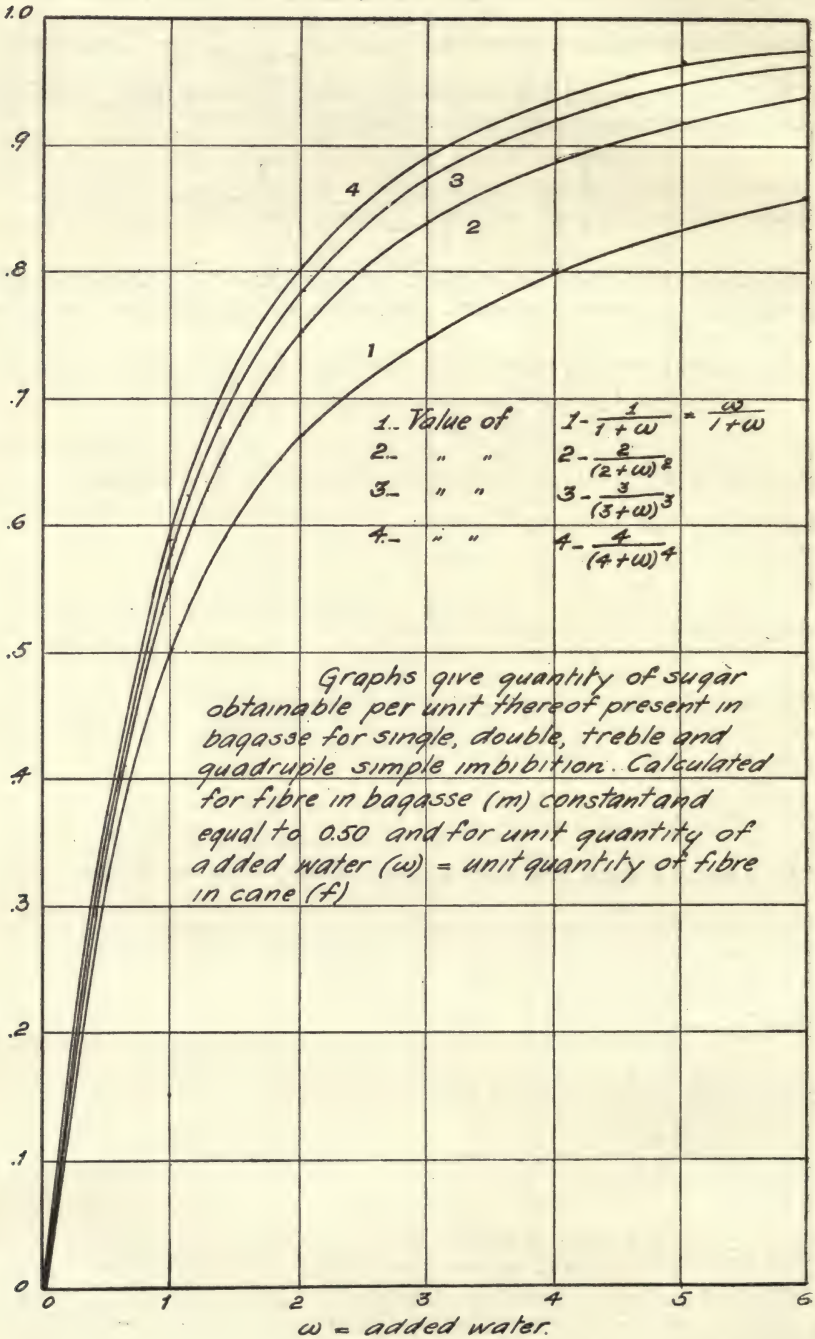 1.0
.9
.8
.7
.6
.5
.4
.3
.2
.1
0
4
3
2
1
1.. Value of 1 - 1/(1 + ω) = ω/(1 + ω)
2.. " " 2 - 2/(2 + ω)²
3.. " " 3 - 3/(3 + ω)³
4.. " " 4 - 4/(4 + ω)⁴
Graphs give quantity of sugar
obtainable per unit thereof present in
bagasse for single, double, treble and
quadruple simple imbibition. Calculated
for fibre in bagasse (m) constant and
equal to 0.50 and for unit quantity of
added water (ω) = unit quantity of fibre
in cane (f)
0 1 2 3 4 5 6
ω = added water.